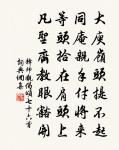 大庾嶺頭提不起
同庵親手付將來
等頭拾在肩頭上
凡聖齊教眼豁開
釋師觀偈頌七十六首
詞典網集